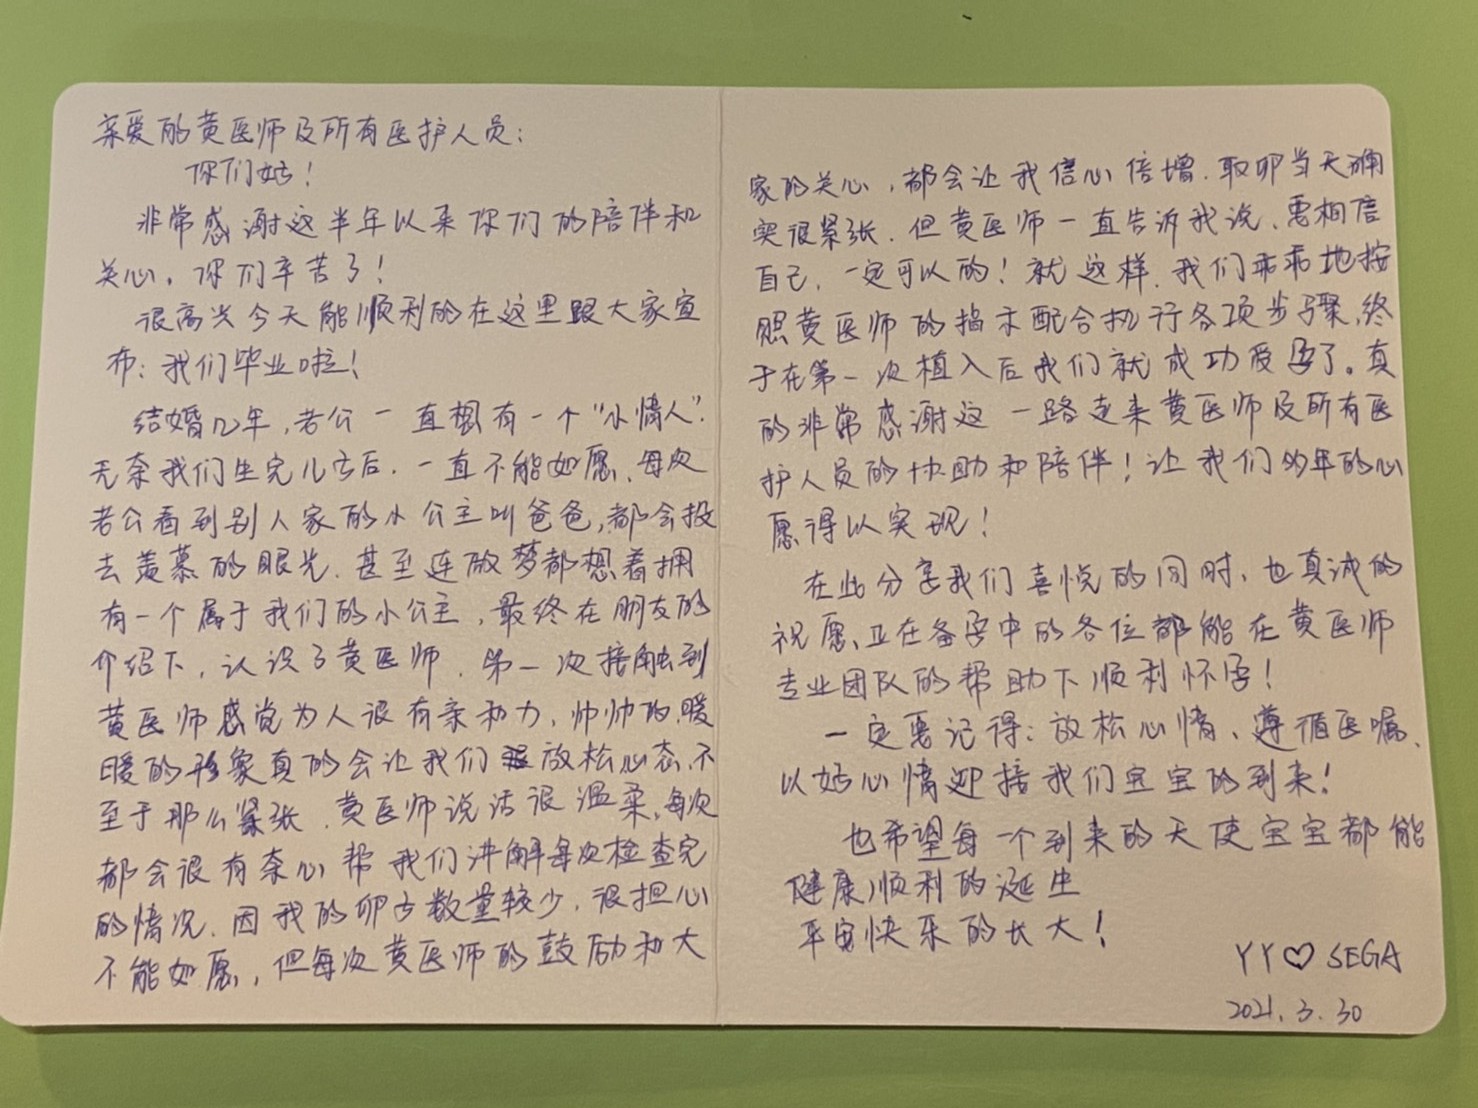 亲爱的黄医师及所有医护人员:
你们好!
非常感谢这半年以来你们的陪伴和
关心,你们辛苦了!
很高兴今天能顺利的在这里跟大家宣
布:我们毕业啦!
结婚几年,老公一直想有一个“小情人”.
无奈我们生完儿子后,一直不能如愿,每次
老公看到别人家的小公主叫爸爸,都会投
去羡慕的眼光.甚至连做梦都想着拥
有一个属于我们的小公主,最终在朋友的
介绍下,认识了黄医师.第一次接触到
黄医师感觉为人很有亲和力,帅帅的,暖
暖的形象真的会让我们放松心态,不
至于那么紧张.黄医师说话很温柔,每次
都会很有奈心帮我们讲解每次检查完
的情况.因我的卵子数量较少,很担心
不能如愿,但每次黄医师的鼓励和大
家的关心,都会让我信心倍增.取卵当天确
实很紧张.但黄医师一直告诉我说,要相信
自己,一定可以的!就这样,我们乖乖地按
照黄医师的指示配合执行各项步骤,终
于在第一次植入后我们就成功受孕了。真
的非常感谢这一路走来黄医师及所有医
护人员的协助和陪伴!让我们多年的心
愿得以实现!
在此分享我们喜悦的同时,也真诚的
祝愿,正在备孕中的各位都能在黄医师
专业团队的帮助下顺利怀孕!
一定要记得:放松心情、遵循医嘱、
以好心情迎接我们宝宝的到来!
也希望每一个到来的天使宝宝都能
健康顺利的诞生
平安快乐的长大!
YY♡SEGA
2021.3.30